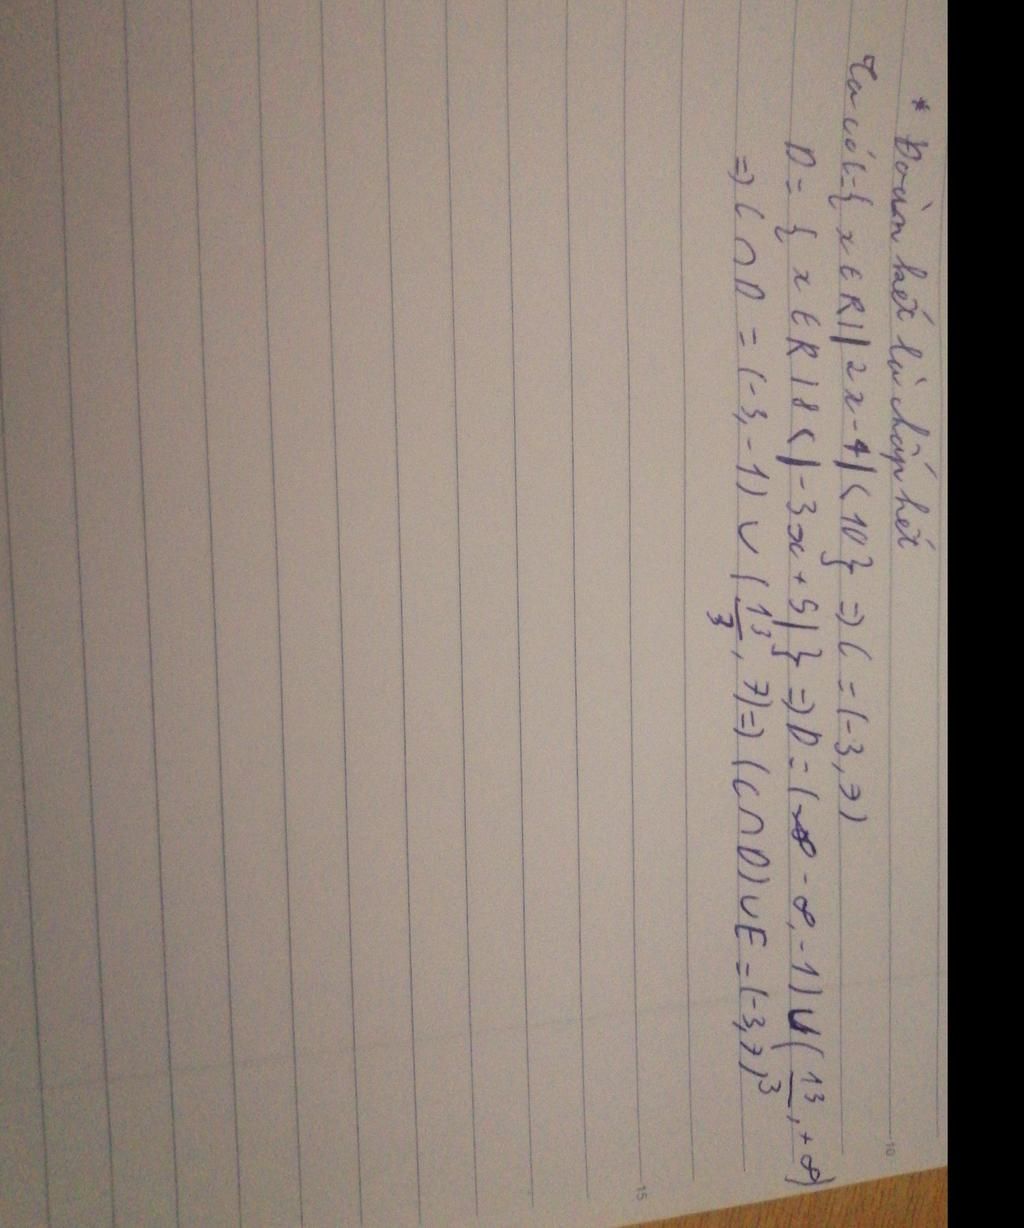 * Đoàn kết là chấp hết
Ta có C={ x ∈ R | | 2x-4 | < 10 } => C = (-3, 7)
D = { x ∈ R | 8 < | -3x + 5 | } => D = ( - ∞, -1) ∪ ( 13/3 , + ∞)
=> C ∩ D = (-3, -1) ∪ ( 13/3 , 7) => (C ∩ D) ∪ E = (-3, 7)
10
15